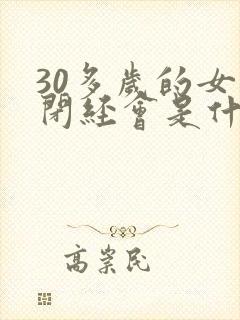 30多歲的女
閉經會是什
高崇民